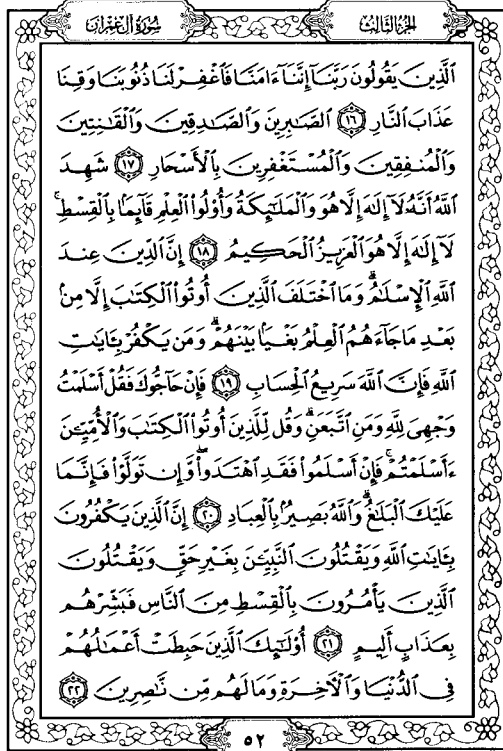 سُورَةُ آلِ عِمْرَان
الجُزْءُ الثَّالِث
ٱلَّذِينَ يَقُولُونَ رَبَّنَآ إِنَّنَآ ءَامَنَّا فَٱغْفِرْ لَنَا ذُنُوبَنَا وَقِنَا
عَذَابَ ٱلنَّارِ ١٦ ٱلصَّٰبِرِينَ وَٱلصَّٰدِقِينَ وَٱلْقَٰنِتِينَ
وَٱلْمُنفِقِينَ وَٱلْمُسْتَغْفِرِينَ بِٱلْأَسْحَارِ ١٧ شَهِدَ
ٱللَّهُ أَنَّهُۥ لَآ إِلَٰهَ إِلَّا هُوَ وَٱلْمَلَٰٓئِكَةُ وَأُو۟لُوا۟ ٱلْعِلْمِ قَآئِمًۢا بِٱلْقِسْطِ ۚ
لَآ إِلَٰهَ إِلَّا هُوَ ٱلْعَزِيزُ ٱلْحَكِيمُ ١٨ إِنَّ ٱلدِّينَ عِندَ
ٱللَّهِ ٱلْإِسْلَٰمُ ۗ وَمَا ٱخْتَلَفَ ٱلَّذِينَ أُوتُوا۟ ٱلْكِتَٰبَ إِلَّا مِنۢ
بَعْدِ مَا جَآءَهُمُ ٱلْعِلْمُ بَغْيًۢا بَيْنَهُمْ ۗ وَمَن يَكْفُرْ بِـَٔايَٰتِ
ٱللَّهِ فَإِنَّ ٱللَّهَ سَرِيعُ ٱلْحِسَابِ ١٩ فَإِنْ حَآجُّوكَ فَقُلْ أَسْلَمْتُ
وَجْهِىَ لِلَّهِ وَمَنِ ٱتَّبَعَنِ ۗ وَقُل لِّلَّذِينَ أُوتُوا۟ ٱلْكِتَٰبَ وَٱلْأُمِّيِّـۧنَ
ءَأَسْلَمْتُمْ ۚ فَإِنْ أَسْلَمُوا۟ فَقَدِ ٱهْتَدَوا۟ ۖ وَّإِن تَوَلَّوْا۟ فَإِنَّمَا
عَلَيْكَ ٱلْبَلَٰغُ ۗ وَٱللَّهُ بَصِيرٌۢ بِٱلْعِبَادِ ٢٠ إِنَّ ٱلَّذِينَ يَكْفُرُونَ
بِـَٔايَٰتِ ٱللَّهِ وَيَقْتُلُونَ ٱلنَّبِيِّـۧنَ بِغَيْرِ حَقٍّ وَيَقْتُلُونَ
ٱلَّذِينَ يَأْمُرُونَ بِٱلْقِسْطِ مِنَ ٱلنَّاسِ فَبَشِّرْهُم
بِعَذَابٍ أَلِيمٍ ٢١ أُو۟لَٰٓئِكَ ٱلَّذِينَ حَبِطَتْ أَعْمَٰلُهُمْ
فِى ٱلدُّنْيَا وَٱلْءَاخِرَةِ وَمَا لَهُم مِّن نَّٰصِرِينَ ٢٢
٥٢